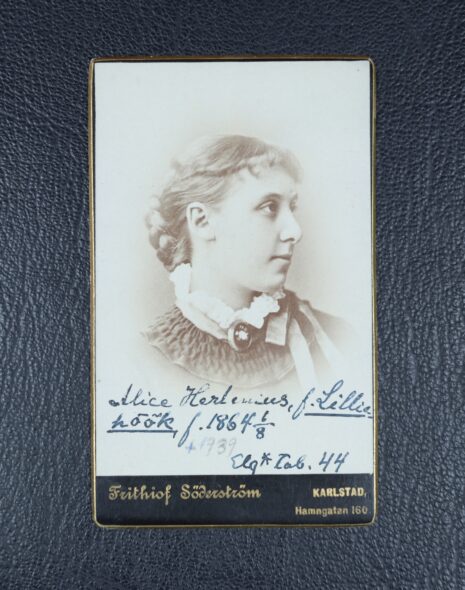 Alice Herlenius, f. Lillie-
höök, f. 1864 1/8
+1939
Elg* Tab. 44
Frithiof Söderström
KARLSTAD,
Hamngatan 160